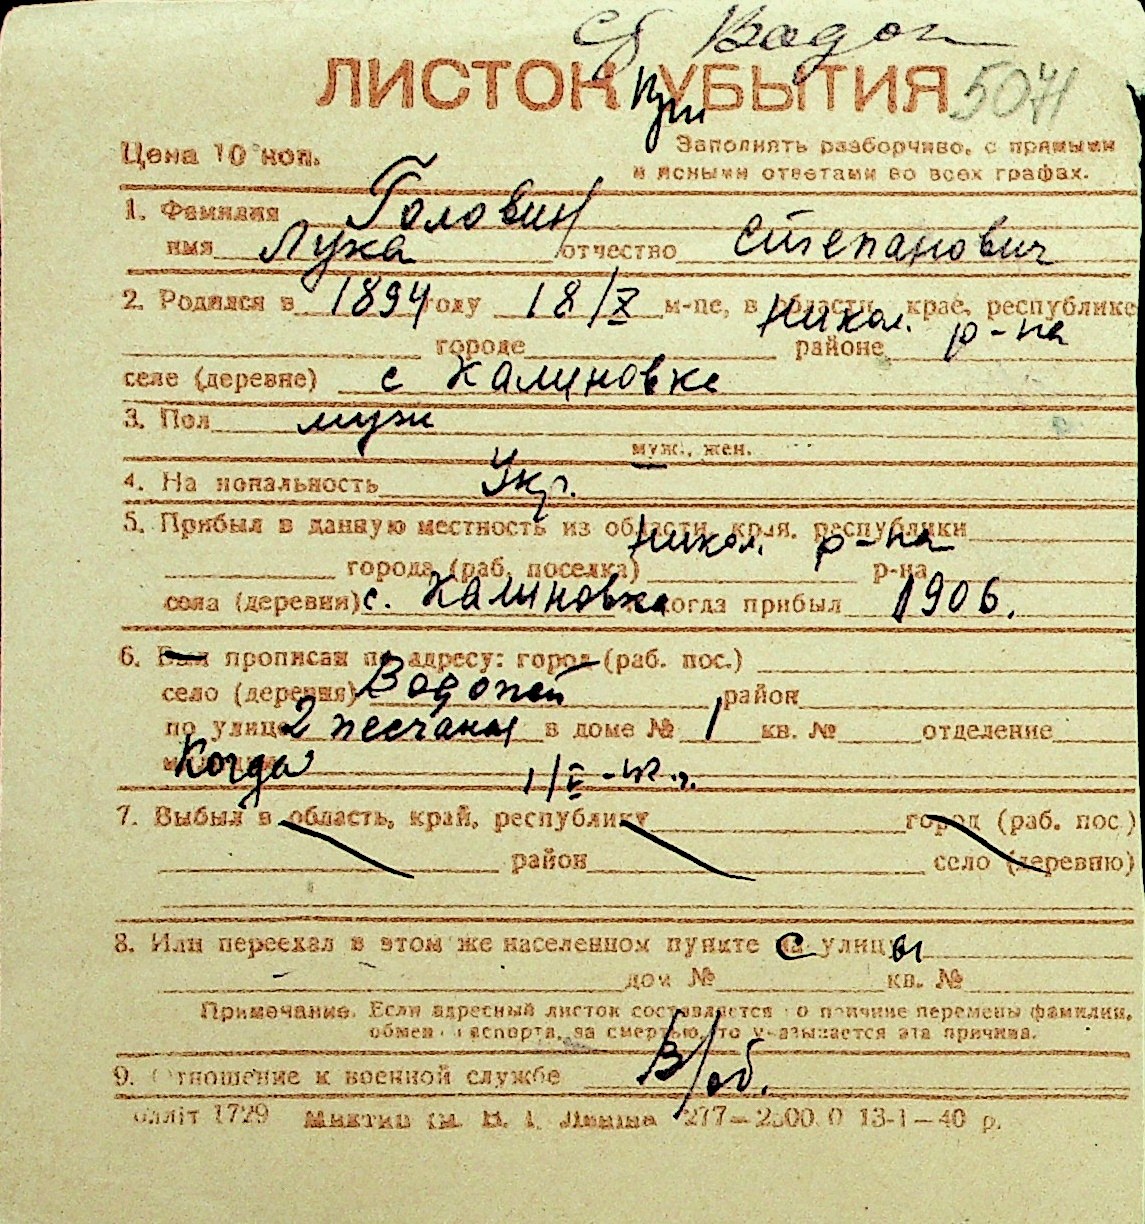 сб Водоп
ЛИСТОК УБЫТИЯ 5071
При
Цена 10 коп.
Заполнять разборчиво, с прямыми
и ясными ответами во всех графах.
1. Фамилия Головин
имя Лука отчество Степанович
2. Родился в 1894 году 18/X м-це, в области, крае, республике
Никол. р-на
городе районе
селе (деревне) с Калиновке
3. Пол муж
муж., жен.
4. Национальность Укр.
5. Прибыл в данную местность из области, края, республики
Никол. р-на
города (раб. поселка) р-на
села (деревни) с. Калиновка когда прибыл 1906.
6. Был прописан по адресу: город (раб. пос.)
село (деревня) Водопой район
по улице 2 песчаная в доме № 1 кв. № отделение
Когда 1/V-42 г.
7. Выбыл в область, край, республику город (раб. пос.)
район село (деревню)
8. Или переехал в этом же населенном пункте с улицы
дом № кв. №
Примечание. Если адресный листок составляется по причине перемены фамилии,
обмена паспорта, за смертью, то указывается эта причина.
9. Отношение к военной службе В/об.
1729 277—2500 0 13-1—40 р.